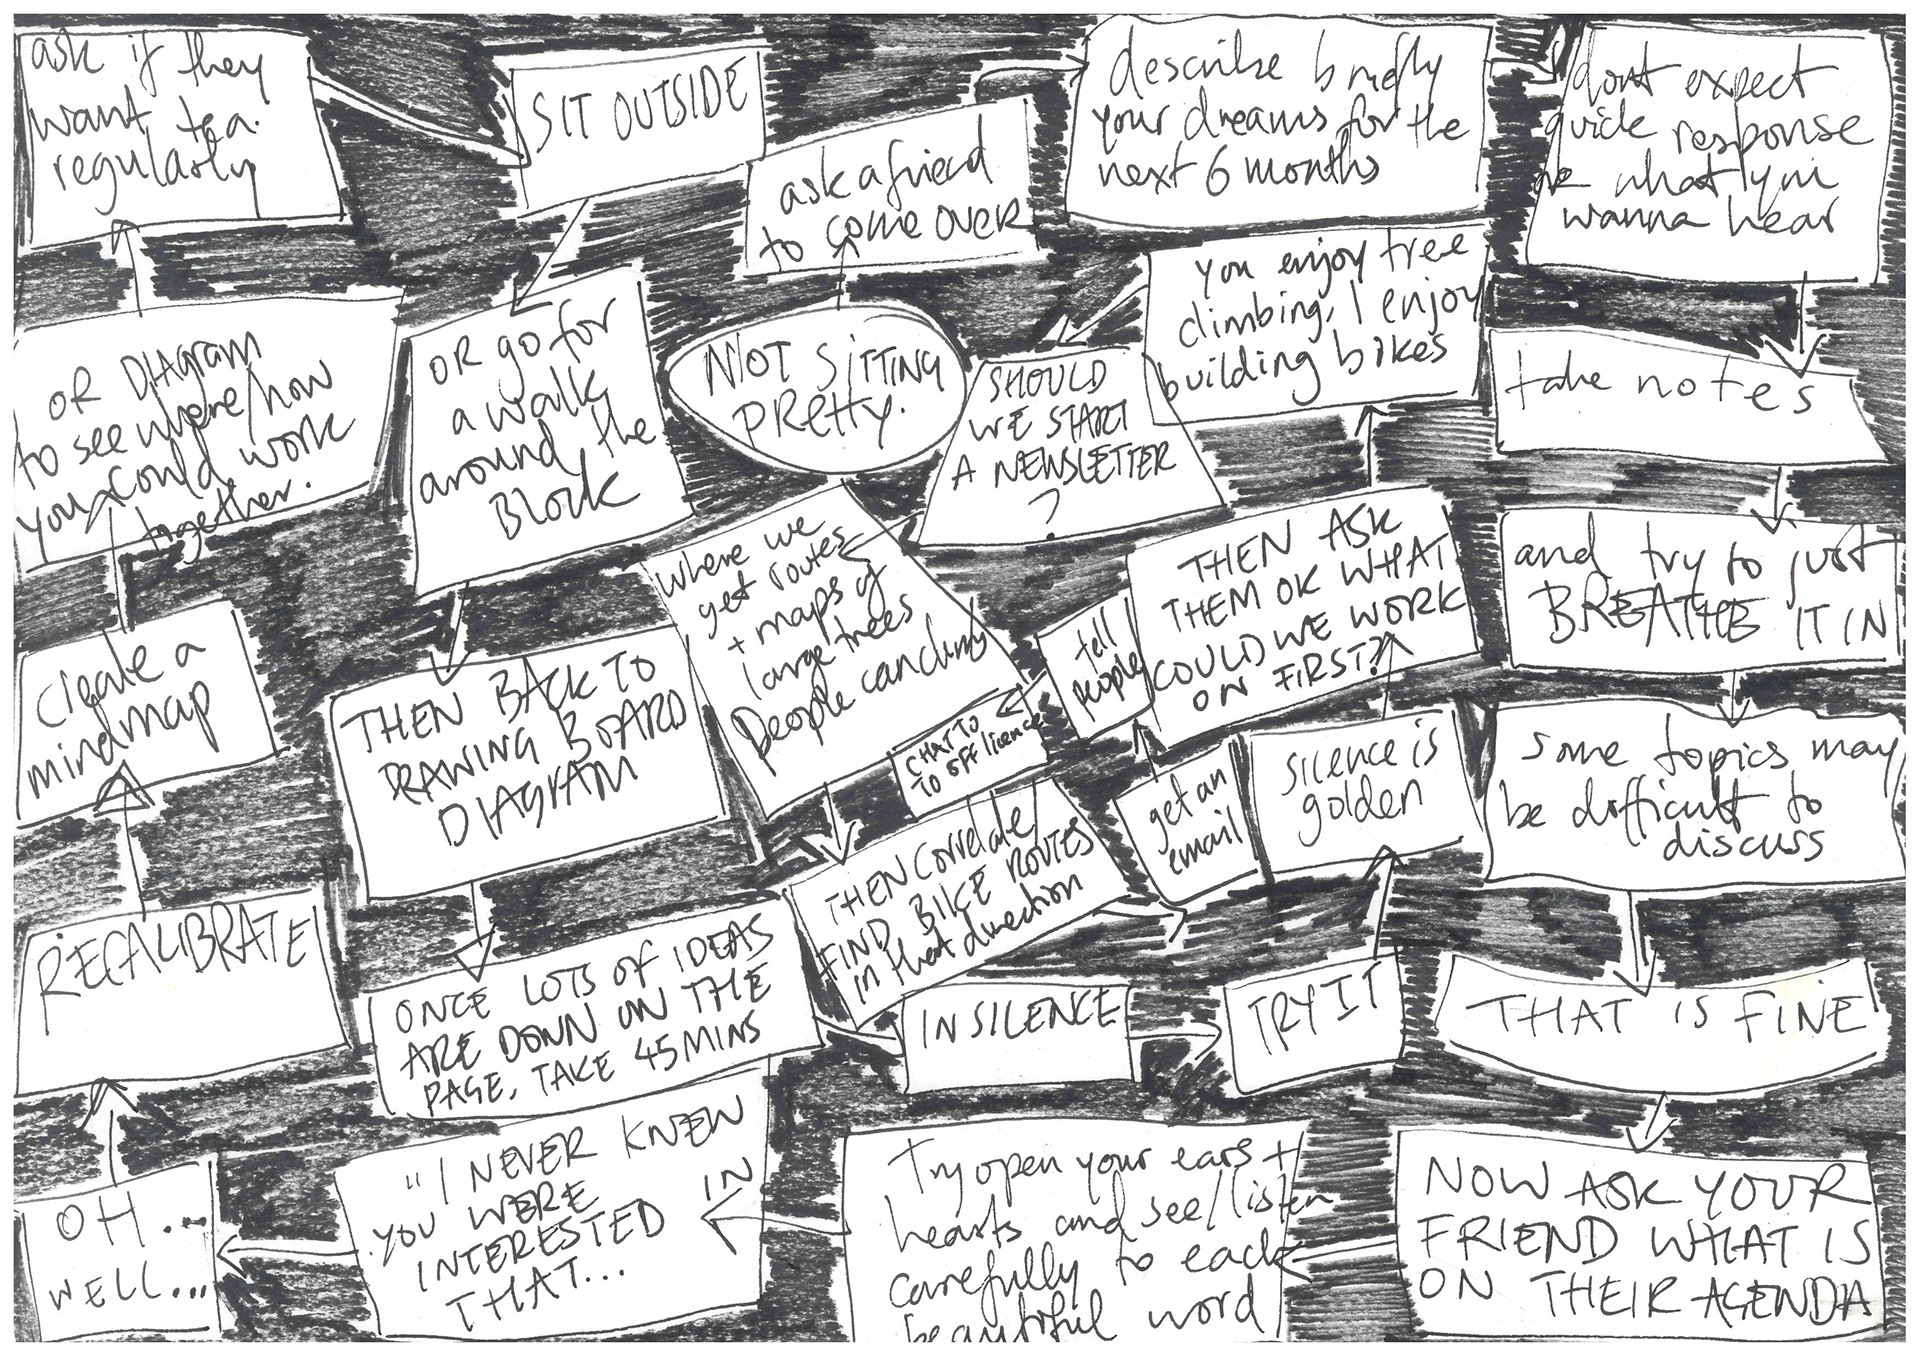 NOT SITTING
PRETTY.
ask a friend
to come over
describe briefly
your dreams for the
next 6 months
dont expect
quick response
or what you
wanna hear
take notes
and try to just
BREATHE IT IN
some topics may
be difficult to
discuss
THAT IS FINE
NOW ASK YOUR
FRIEND WHAT IS
ON THEIR AGENDA
Try open your ears +
hearts and see/listen
carefully to each
beautiful word
"I NEVER KNEW
YOU WERE
INTERESTED IN
THAT...
OH...
WELL...
RECALIBRATE
create a
mindmap
OR DIAGRAM
to see where/how
you could work
together.
ask if they
want tea.
regularly
SIT OUTSIDE
OR go for
a walk
around the
Block
THEN BACK TO
DRAWING BOARD
DIAGRAM
ONCE LOTS OF IDEAS
ARE DOWN ON THE
PAGE, TAKE 45 MINS
IN SILENCE
TRY IT
silence is
golden
THEN ASK
THEM OK WHAT
COULD WE WORK
ON FIRST?
you enjoy tree
climbing, I enjoy
building bikes
SHOULD
WE START
A NEWSLETTER
?
where we
get routes
+ maps of
large trees
people can climb
THEN Correlate/
FIND BIKE ROUTES
in that direction
get an
email
tell
people
CHAT TO
TO off licence